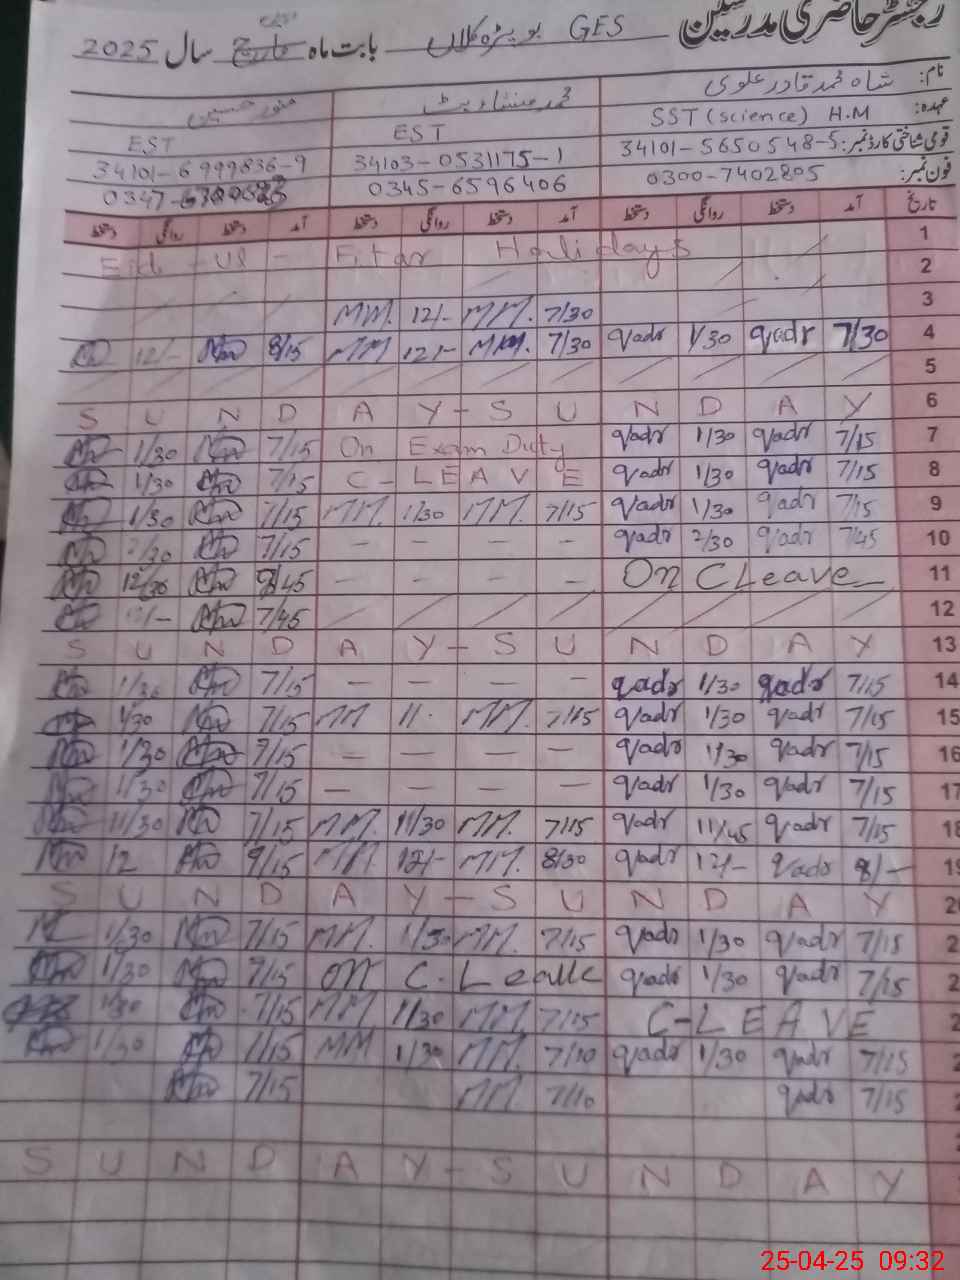 رجسٹر حاضری مدرسین GES بابت ماہ مارچ سال 2025
نام: شاہ محمد قادر علوی محمد منشاء بٹ منور حسین
عہدہ: SST (science) H.M EST EST
قومی شناختی کارڈ نمبر: 34101-5650548-5 34103-0531175-1 34101-6999836-9
فون نمبر: 0300-7402805 0345-6596406 0347-
تاریخ آمد دستخط روانگی دستخط آمد دستخط روانگی دستخط آمد دستخط روانگی دستخط
Eid-ul-Fitar Holidays 1
2
MM. 12/- MM. 7/30 3
12/- 8/15 MM 12/- MM. 7/30 qadr 1/30 qadr 7/30 4
5
S U N D A Y - S U N D A Y 6
1/30 7/15 On Exam Duty qadr 1/30 qadr 7/15 7
1/30 7/15 C-LEAVE qadr 1/30 qadr 7/15 8
1/30 7/15 MM. 1/30 MM. 7/15 qadr 1/30 qadr 7/15 9
2/30 7/15 - - - - qadr 2/30 qadr 7/45 10
12/30 - - - On C Leave 11
7/45 12
S U N D A Y - S U N D A Y 13
1/30 7/15 - - - - qadr 1/30 qadr 7/15 14
1/30 7/15 MM 11- MM. 7/15 qadr 1/30 qadr 7/15 15
1/30 7/15 - - - - qadr 1/30 qadr 7/15 16
1/30 7/15 - - - - qadr 1/30 qadr 7/15 17
11/30 7/15 MM. 11/30 MM. 7/15 qadr 11/45 qadr 7/15 18
12 MM 12/- MM. 8/30 qadr 12/- qadr 8/- 19
S U N D A Y - S U N D A Y
1/30 7/15 MM. 1/30 MM. 7/15 qadr 1/30 qadr 7/15
1/30 7/15 on C. Leave qadr 1/30 qadr 7/15
1/30 7/15 MM 11/30 MM 7/15 C-LEAVE
1/30 7/15 MM 1/30 MM. 7/10 qadr 1/30 qadr 7/15
7/15 MM. 7/10 qadr 7/15
S U N D A Y - S U N D A Y
25-04-25 09:32